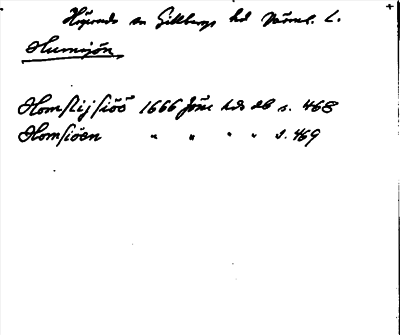 Högerud sn Gillbergs hd Värml. L.
Humsjön
Homstijsiöö 1666 Jöne hds db s. 468
Homsiöen " " " " s. 469